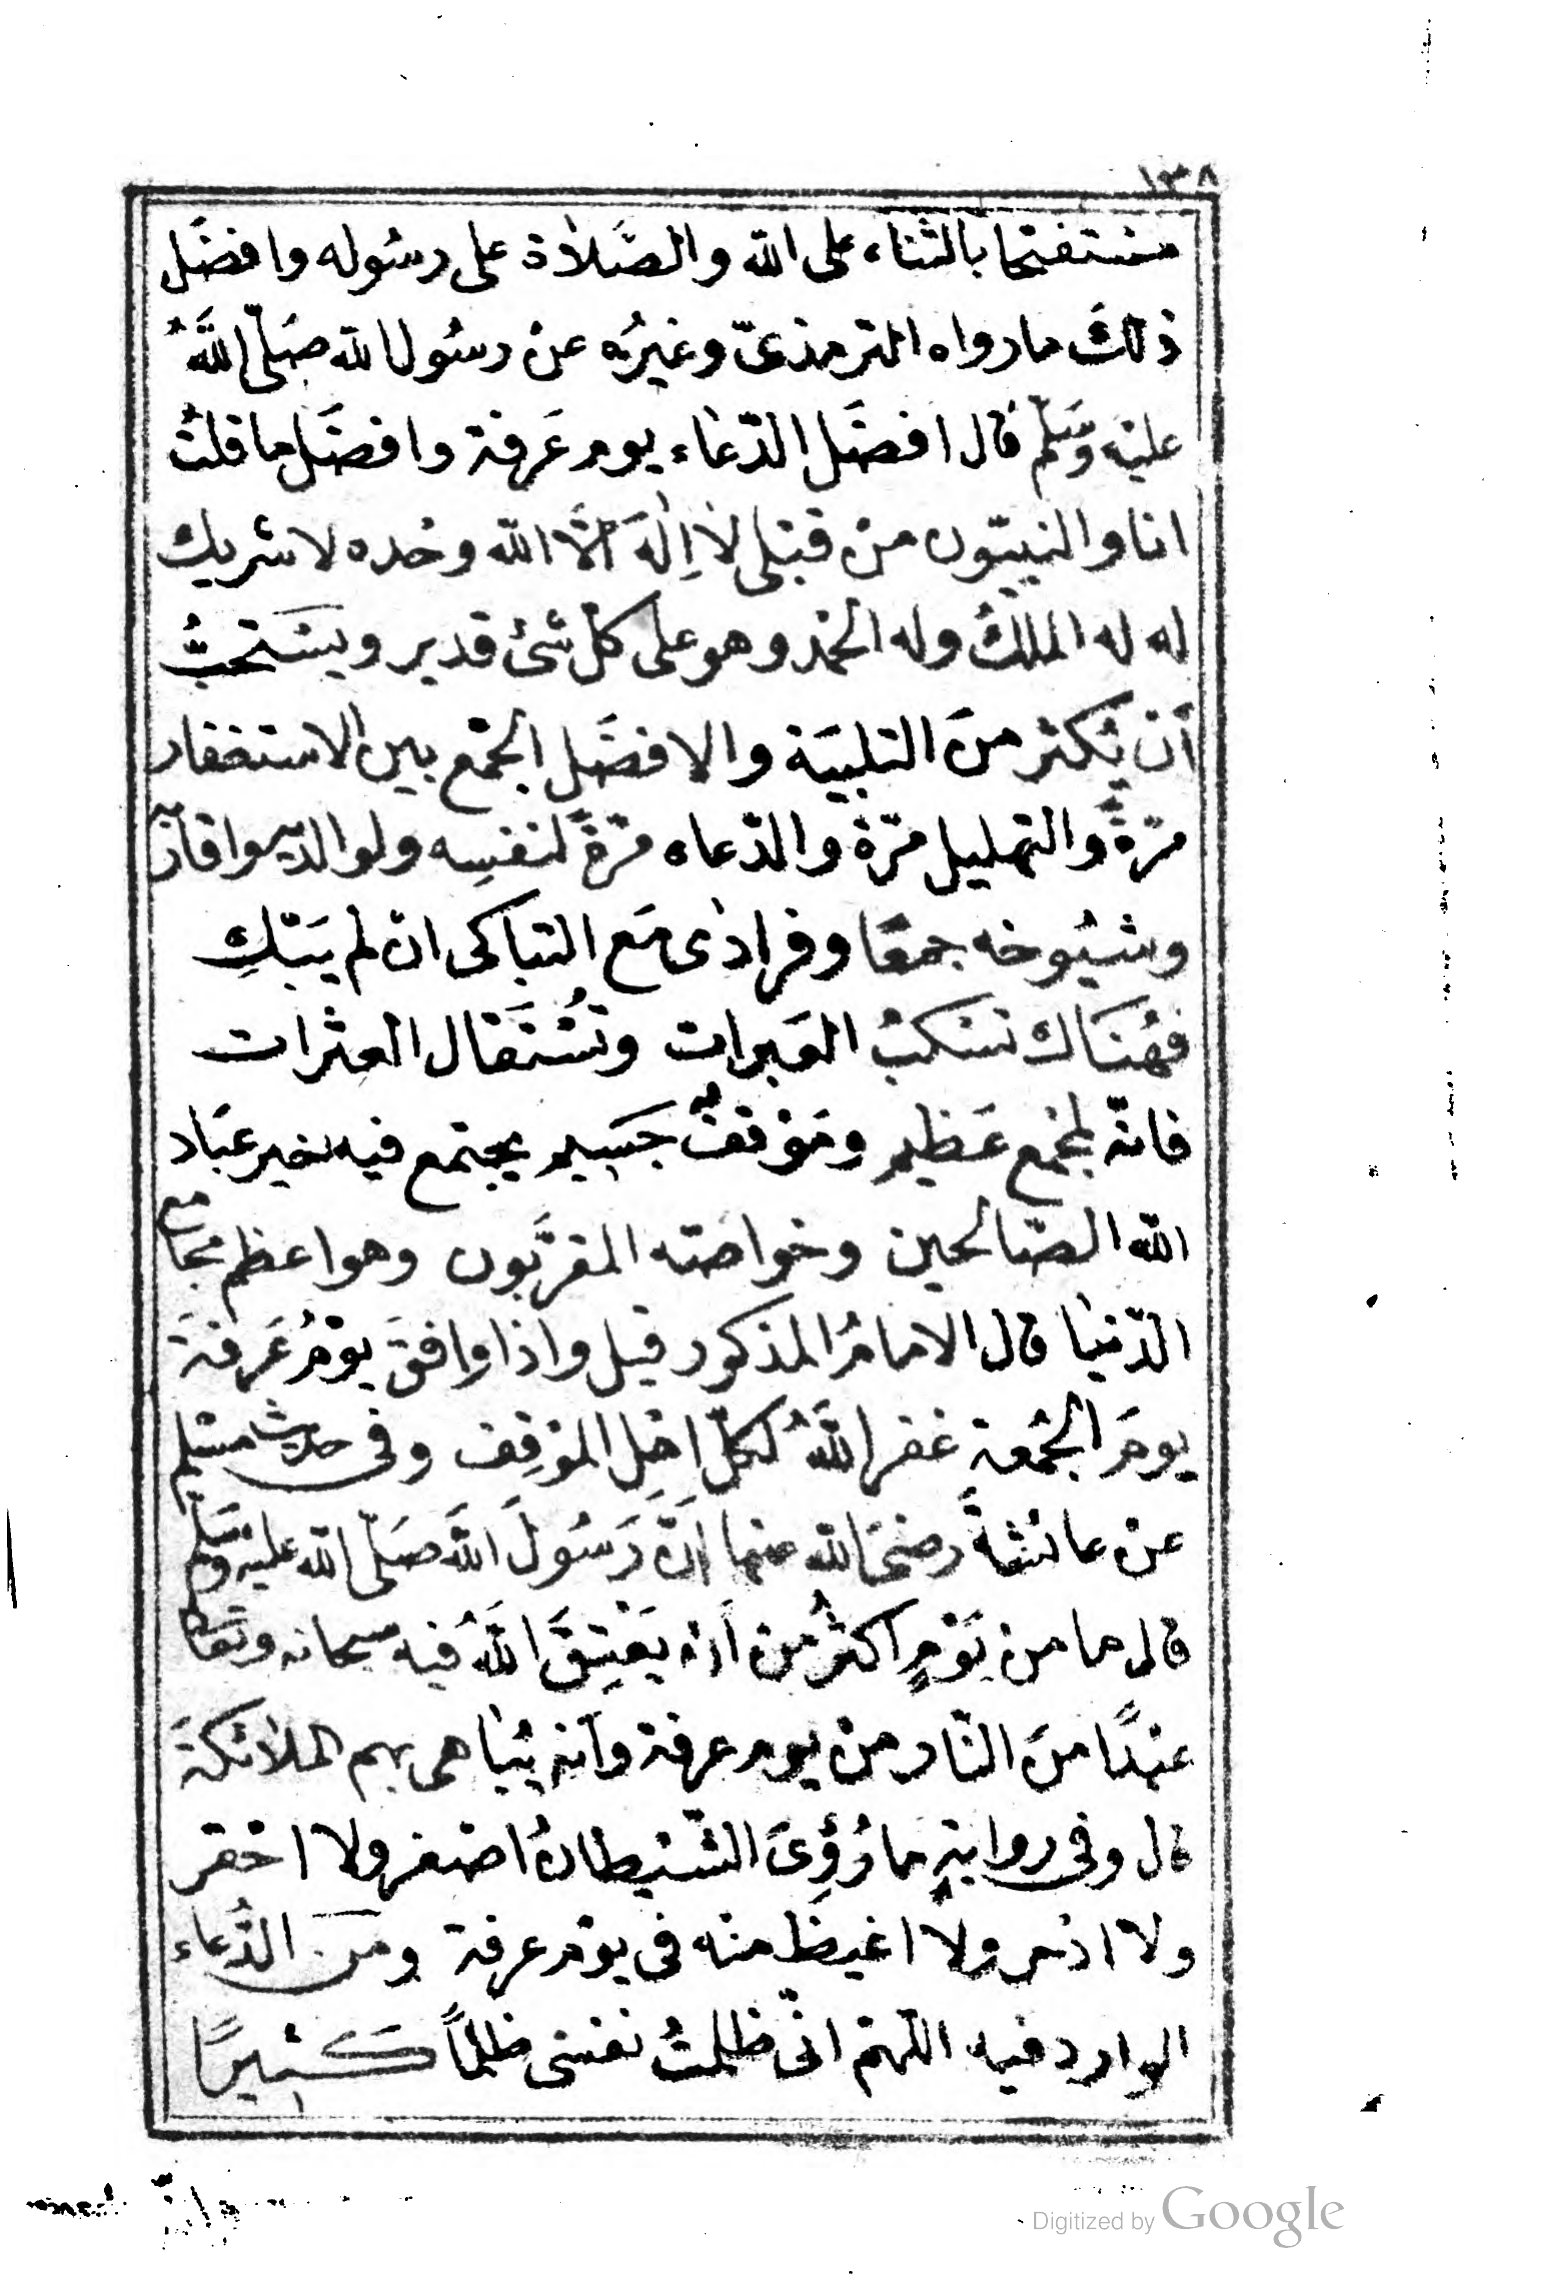 ١٣٨
مستفتحا بالثناء على الله والصَّلاة على رسُوله وافضَل
ذلكَ مارواه الترمذىّ وغيرُه عنْ رسُول الله صَلّى اللَّهُ
عليْه وَسَلّم قال افضَل الدّعاء يوم عَرفة وافضَل ما قلتُ
انا والنبيّون منْ قبْلى لاَ اِلهَ الَّا الله وحْده لا شريك
له له الملكُ وله الحمْد وهو على كلّ شئ قدير ويسْتحبُّ
أن يُكثر منَ التلبيَة والافضَل الجمْع بين الاستغفار
مرّةً والتهليل مرّة والدّعاء مرّةً لنفسِه ولوالديه واقاربه
وشيُوخه جمعًا وفرادٰى مَع التباكى ان لم يَبْكِ
فهُنَاك تسْكبُ العَبرات وتُسْتَقال العثرات
فانّه لمجْمع عَظيم ومَوْقفٌ جَسِيم يجتمع فيه خير عبَاد
الله الصّالحين وخواصّه المقرّبون وهو اعظم مجامع
الدّنيٰا قال الامامُ المذكور قيل واذا وافقَ يوْمُ عَرفةَ
يومَ الجُمْعة غفر اللَّهُ لكلّ اهْلِ الموْقِف وفى حديث مسْلم
عنْ عائشةَ رضىَ الله عنها اَنَّ رَسُولَ اللَّه صَلّى الله عليْه وسَلّم
قال ما من يَوْمٍ اكثرُ من أنْ يَعْتِقَ اللَّهُ فيه سبحانه وتعالى
عبْدًا منَ النّار منْ يوم عرفة وأنه يُبٰاهى بهم الملائكةَ
قال وفى روايةٍ مارُؤِىَ الشّيْطانُ اصْغر ولا احْقر
ولا ادْحر ولا اغيظ منْه فى يوْم عرفة ومنَ الدُّعاء
الوارد فيه اللّهمّ انّى ظلمْتُ نفسْى ظلماً كَثيرًا
Digitized by Google